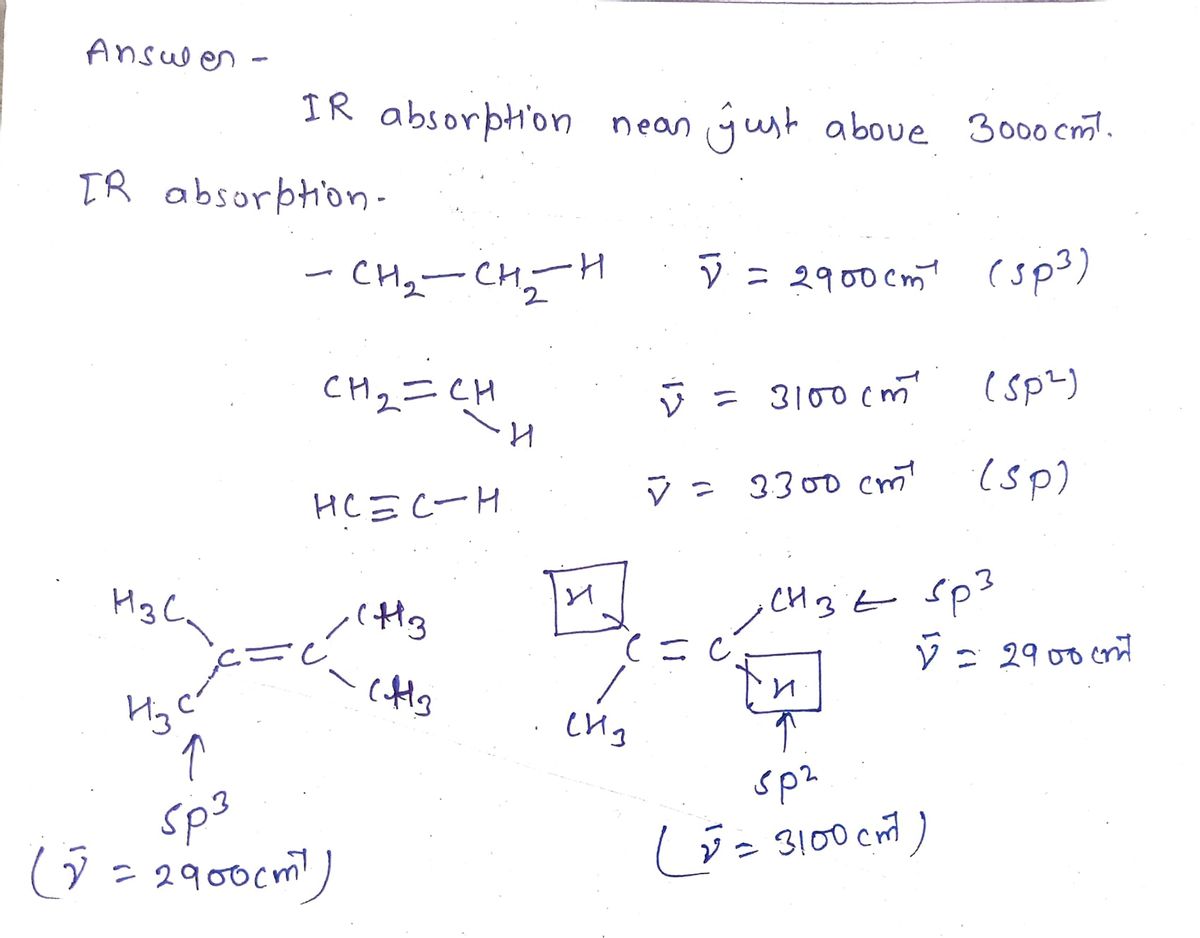 Answer -
IR absorption near just above 3000 cm⁻¹.
IR absorption -
- CH₂ — CH₂ — H   ν̄ = 2900 cm⁻¹ (sp³)
CH₂ = CH – H   ν̄ = 3100 cm⁻¹ (sp²)
HC ≡ C — H   ν̄ = 3300 cm⁻¹ (sp)
H₃C   CH₃   H   CH₃ ← sp³
C = C   C = C   ν̄ = 2900 cm⁻¹
H₃C   CH₃   CH₃   H
↑   ↑
sp³   sp²
(ν̄ = 2900 cm⁻¹)   (ν̄ = 3100 cm⁻¹)